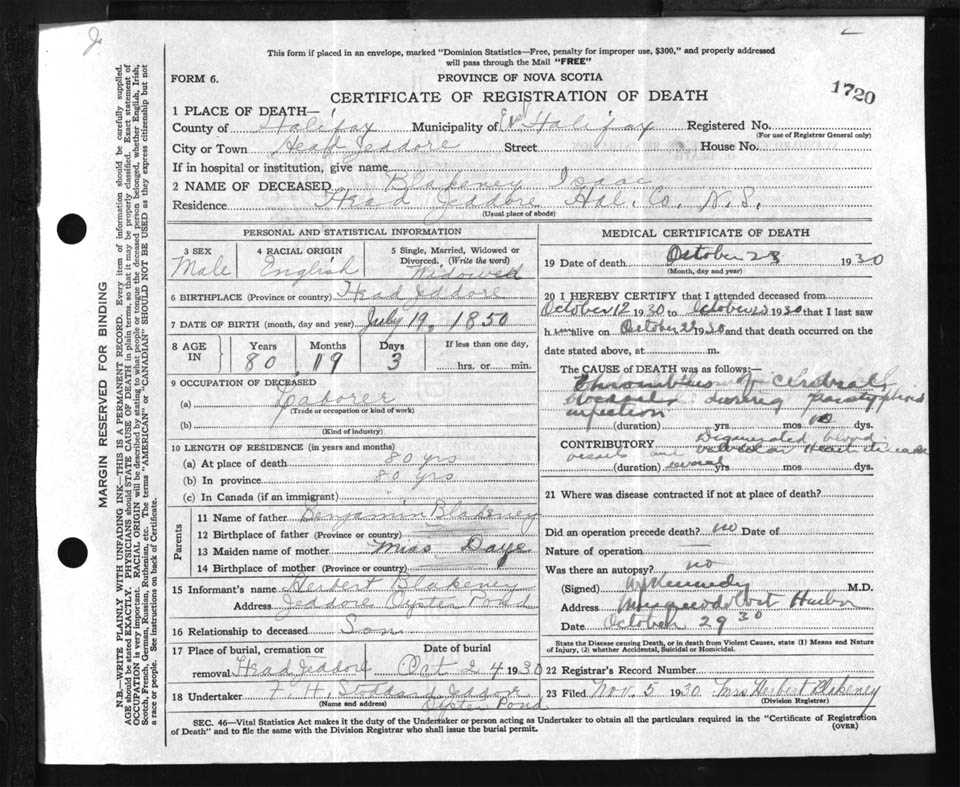 This form if placed in an envelope, marked "Dominion Statistics—Free, penalty for improper use, $300," and properly addressed
will pass through the Mail "FREE"
FORM 6.
PROVINCE OF NOVA SCOTIA
1720
CERTIFICATE OF REGISTRATION OF DEATH
1 PLACE OF DEATH—
County of Halifax Municipality of Halifax Registered No.
(For use of Registrar General only)
City or Town Head Jeddore Street House No.
If in hospital or institution, give name
2 NAME OF DECEASED Blakeney Isaac
Residence Head Jeddore Hal. Co. N.S.
(Usual place of abode)
PERSONAL AND STATISTICAL INFORMATION
3 SEX
Male
4 RACIAL ORIGIN
English
5 Single, Married, Widowed or
Divorced. (Write the word)
Widowed
6 BIRTHPLACE (Province or country) Head Jeddore
7 DATE OF BIRTH (month, day and year) July 19, 1850
8 AGE
IN
Years
80
Months
Days
3
If less than one day,
hrs. or min.
9 OCCUPATION OF DECEASED
(a) Laborer
(Trade or occupation or kind of work)
(b)
(Kind of industry)
10 LENGTH OF RESIDENCE (in years and months)
(a) At place of death 80 yrs
(b) In province 80 yrs
(c) In Canada (if an immigrant)
Parents
11 Name of father Benjamin Blakeney
12 Birthplace of father (Province or country)
13 Maiden name of mother Miss Daye
14 Birthplace of mother (Province or country)
15 Informant's name Herbert Blakeney
Address Jeddore Oyster Pond
16 Relationship to deceased Son
17 Place of burial, cremation or
removal Head Jeddore
Date of burial
Oct 24 1930
18 Undertaker F. H. Jeddore
(Name and address) Oyster Pond
MEDICAL CERTIFICATE OF DEATH
19 Date of death October 23 1930
(Month, day and year)
20 I HEREBY CERTIFY that I attended deceased from
October 12 1930 to October 1930 that I last saw
h alive on October 1930 and that death occurred on the
date stated above, at m.
The CAUSE OF DEATH was as follows:—
Thrombosis of cerebral
during paratyphoid
infection
(duration) yrs mos 10 dys.
CONTRIBUTORY Degenerated blood
vessels and valvular Heart disease
(duration) several yrs mos dys.
21 Where was disease contracted if not at place of death?
Did an operation precede death? no Date of
Nature of operation
Was there an autopsy? no
(Signed) Kennedy M.D.
Address Musquodoboit Harbor
Date October 29 30
State the Disease causing Death, or in death from Violent Causes, state (1) Means and Nature
of Injury, (2) whether Accidental, Suicidal or Homicidal.
22 Registrar's Record Number
23 Filed Nov. 5 1930 Mrs Herbert Blakeney
(Division Registrar)
SEC. 46—Vital Statistics Act makes it the duty of the Undertaker or person acting as Undertaker to obtain all the particulars required in the "Certificate of Registration
of Death" and to file the same with the Division Registrar who shall issue the burial permit.
(OVER)
MARGIN RESERVED FOR BINDING
N.B.—WRITE PLAINLY WITH UNFADING INK—THIS IS A PERMANENT RECORD. Every item of information should be carefully supplied.
AGE should be stated EXACTLY. PHYSICIANS should STATE CAUSE OF DEATH in plain terms, so that it may be properly classified. Exact statement of
OCCUPATION is very important. RACIAL ORIGIN will be described by stating to what people or tongue the deceased person belonged, whether English, Irish,
Scotch, French, German, Russian, Ruthenian, etc. The terms "AMERICAN" or "CANADIAN" SHOULD NOT BE USED as they express citizenship but not
a race or people. See instructions on back of Certificate.